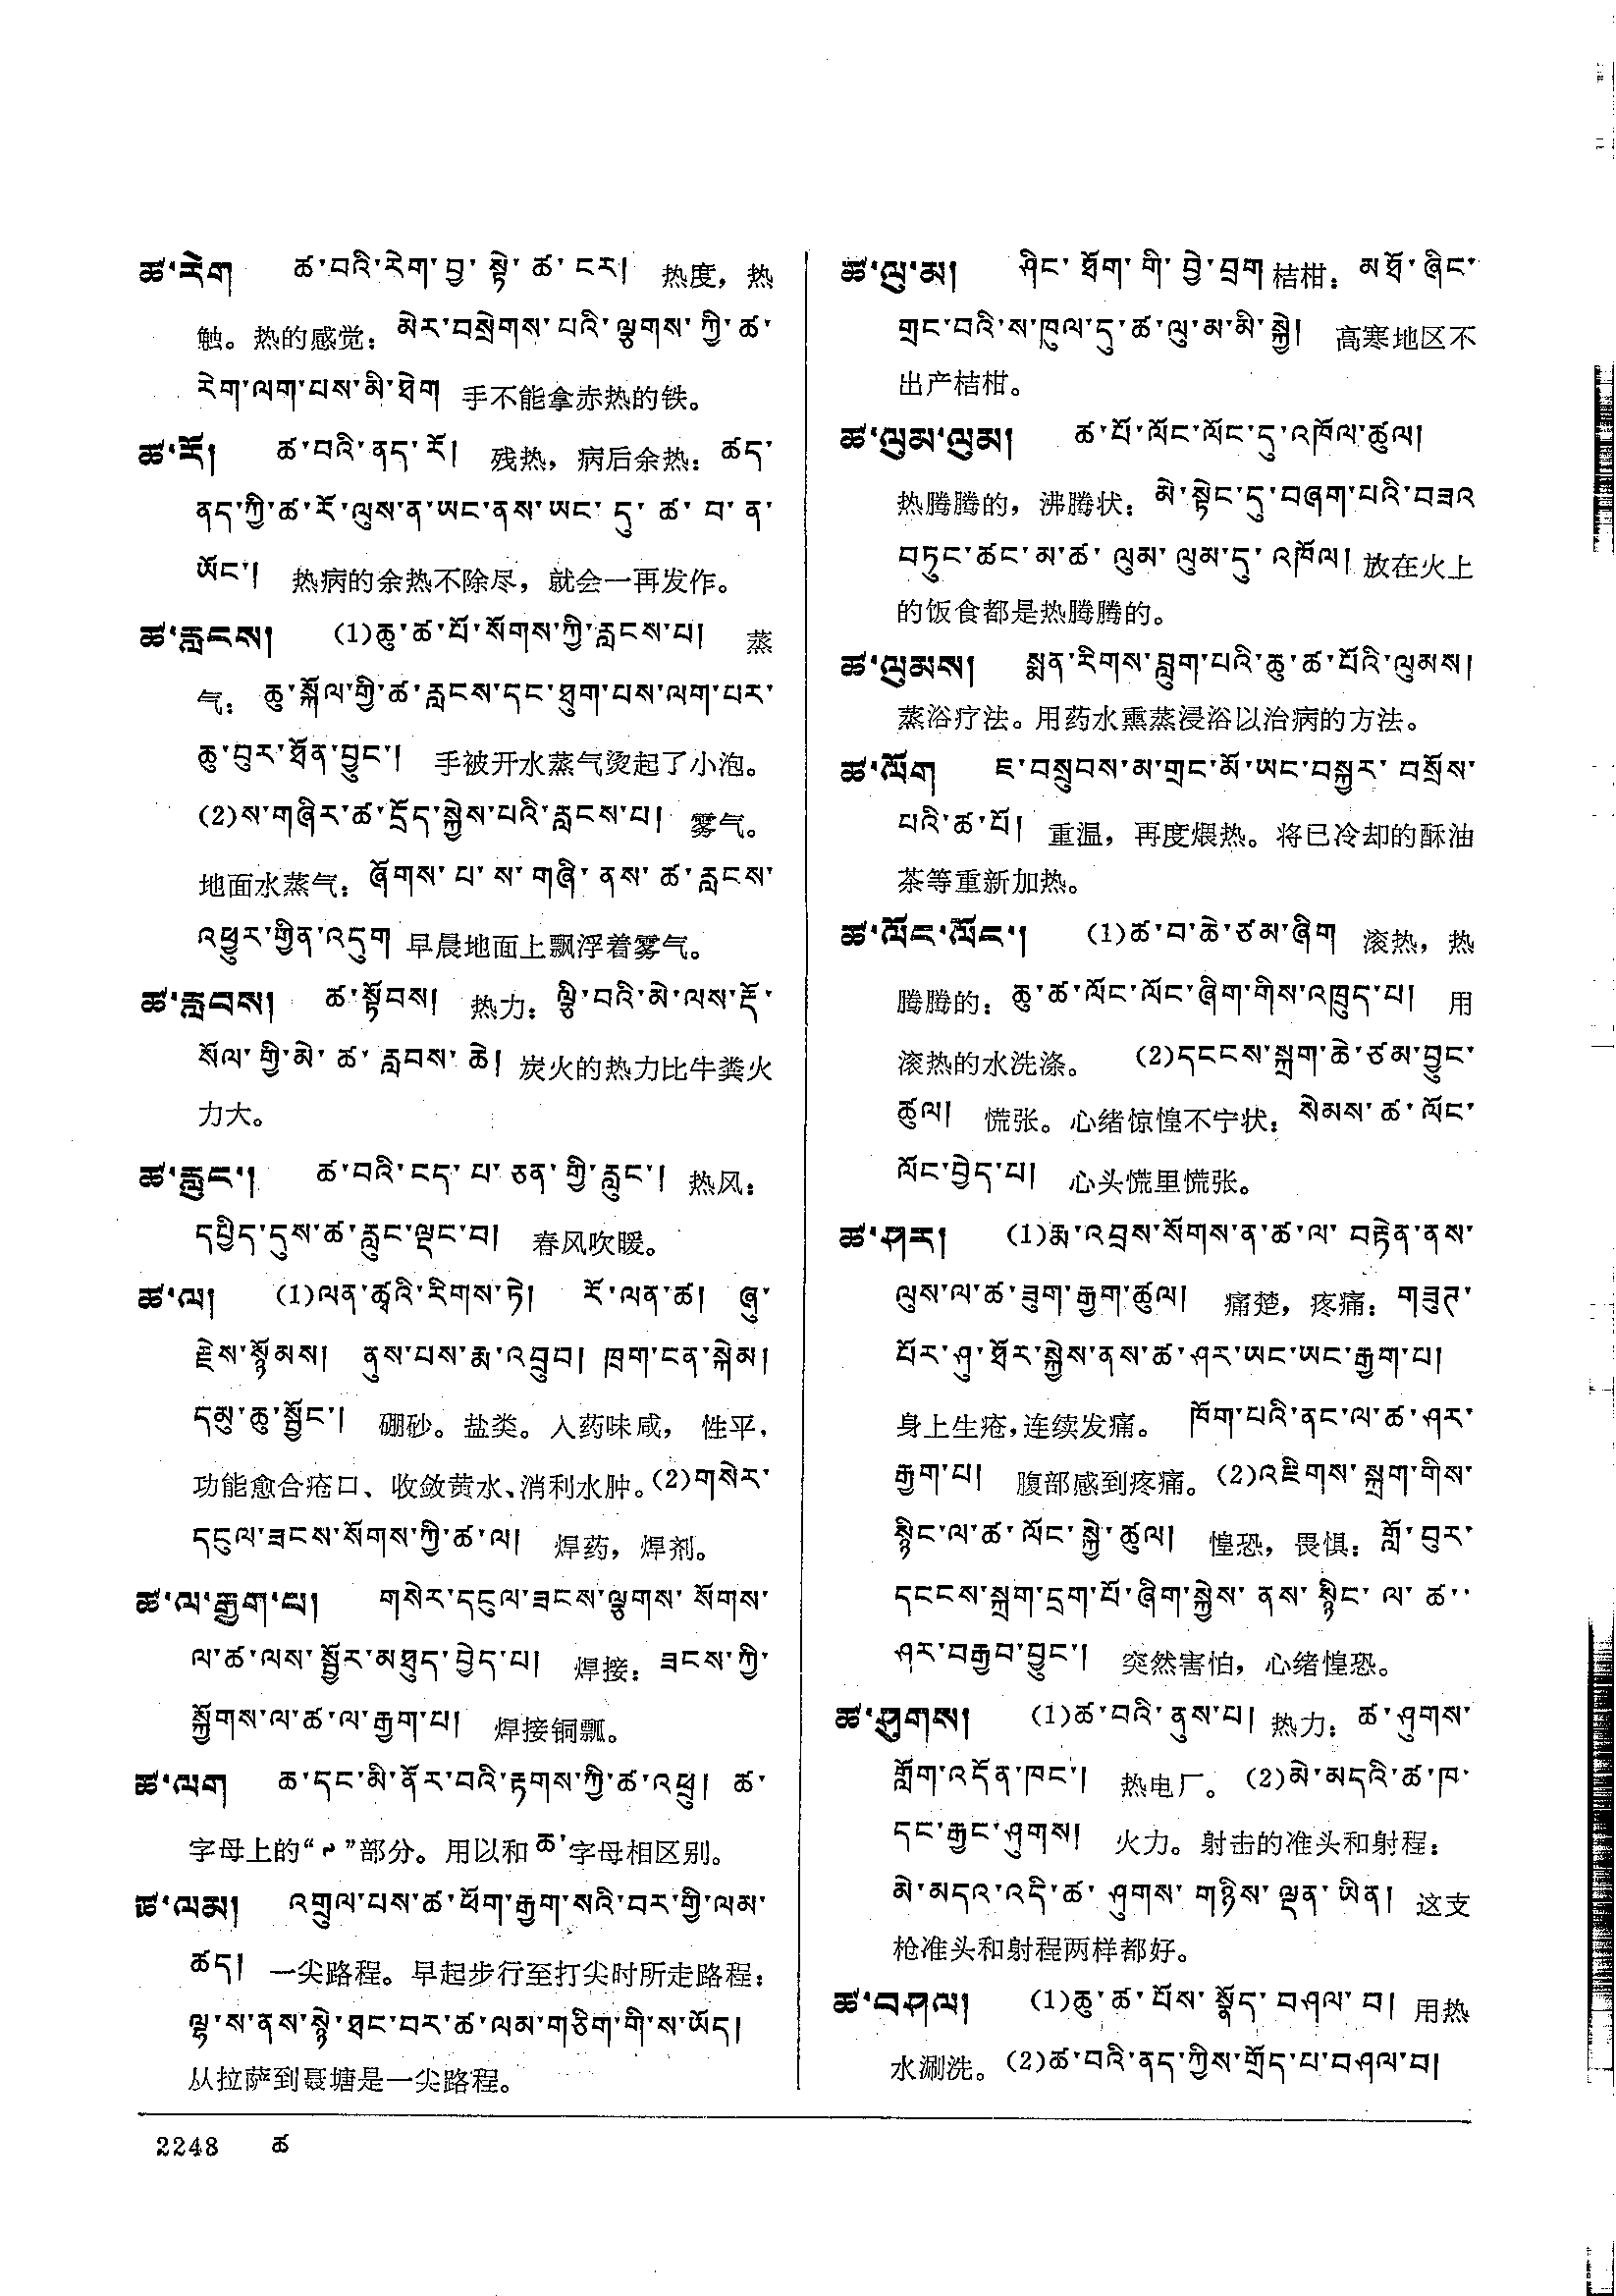 ཚ་རེག ཚ་བའི་རེག་བྱ་སྟེ་ཚ་ངར། 热度，热
触。热的感觉：མེར་བསྲེགས་པའི་ལྕགས་ཀྱི་ཚ་
རེག་ལག་པས་མི་ཐེག 手不能拿赤热的铁。
ཚ་རོ། ཚ་བའི་ནད་རོ། 残热，病后余热：ཚད་
ནད་ཀྱི་ཚ་རོ་ལུས་ན་ཡང་ནས་ཡང་དུ་ཚ་བ་ན་
ཡོང་། 热病的余热不除尽，就会一再发作。
ཚ་རླངས། (1)ཆུ་ཚ་པོ་སོགས་ཀྱི་རླངས་པ། 蒸
气：ཆུ་སྐོལ་གྱི་ཚ་རླངས་དང་ཐུག་པས་ལག་པར་
ཆུ་བུར་ཐོན་བྱུང་། 手被开水蒸气烫起了小泡。
(2)ས་གཞིར་ཚ་དྲོད་སྐྱེས་པའི་རླངས་པ། 雾气。
地面水蒸气：ཞོགས་པ་ས་གཞི་ནས་ཚ་རླངས་
འཕྱུར་གྱིན་འདུག 早晨地面上飘浮着雾气。
ཚ་རླབས། ཚ་སྟོབས། 热力：ལྕི་བའི་མེ་ལས་རྡོ་
སོལ་གྱི་མེ་ཚ་རླབས་ཆེ། 炭火的热力比牛粪火
力大。
ཚ་རླུང་། ཚ་བའི་ངད་པ་ཅན་གྱི་རླུང་། 热风：
དཔྱིད་དུས་ཚ་རླུང་ལྡང་བ། 春风吹暖。
ཚ་ལ། (1)ལན་ཚྭའི་རིགས་ཏེ། རོ་ལན་ཚ། ཞུ་
རྗེས་སྙོམས། ནུས་པས་རྨ་འདྲུབ། ཁྲག་ངན་སྐེམ།
དམུ་ཆུ་སྦྱོང་། 硼砂。盐类。入药味咸，性平，
功能愈合疮口、收敛黄水、消利水肿。(2)གསེར་
དངུལ་ཟངས་སོགས་ཀྱི་ཚ་ལ། 焊药，焊剂。
ཚ་ལ་རྒྱག་པ། གསེར་དངུལ་ཟངས་ལྕགས་སོགས་
ལ་ཚ་ལས་སྦྱོར་མཐུད་བྱེད་པ། 焊接：ཟངས་ཀྱི་
སྐྱོགས་ལ་ཚ་ལ་རྒྱག་པ། 焊接铜瓢。
ཚ་ལག ཆ་དང་མི་ནོར་བའི་རྟགས་ཀྱི་ཚ་འཕྲུ། ཚ་
字母上的“༹”部分。用以和ཆ་字母相区别。
ཚ་ལམ། འགྲུལ་པས་ཚ་ཕོག་རྒྱག་སའི་བར་གྱི་ལམ་
ཚད། 一尖路程。早起步行至打尖时所走路程：
ལྷ་ས་ནས་སྙེ་ཐང་བར་ཚ་ལམ་གཅིག་གི་ས་ཡོད།
从拉萨到聂塘是一尖路程。
ཚ་ལུ་མ། ཤིང་ཐོག་གི་བྱེ་བྲག 桔柑：མཐོ་ཞིང་
གྲང་བའི་ས་ཁུལ་དུ་ཚ་ལུ་མ་མི་སྐྱེ། 高寒地区不
出产桔柑。
ཚ་ལུམ་ལུམ། ཚ་པོ་ལོང་ལོང་དུ་འཁོལ་ཚུལ།
热腾腾的，沸腾状：མེ་སྟེང་དུ་བཞག་པའི་བཟའ
བཏུང་ཚང་མ་ཚ་ལུམ་ལུམ་དུ་འཁོལ། 放在火上
的饭食都是热腾腾的。
ཚ་ལུམས། སྨན་རིགས་བླུག་པའི་ཆུ་ཚ་པོའི་ལུམས།
蒸浴疗法。用药水熏蒸浸浴以治病的方法。
ཚ་ལོག ཇ་བསྲུབས་མ་གྲང་མོ་ཡང་བསྐྱར་བསྲོས་
པའི་ཚ་པོ། 重温，再度煨热。将已冷却的酥油
茶等重新加热。
ཚ་ལོང་ལོང་། (1)ཚ་བ་ཆེ་ཙམ་ཞིག 滚热，热
腾腾的：ཆུ་ཚ་ལོང་ལོང་ཞིག་གིས་འཁྲུད་པ། 用
滚热的水洗涤。 (2)དངངས་སྐྲག་ཆེ་ཙམ་བྱུང་
ཚུལ། 慌张。心绪惊惶不宁状：སེམས་ཚ་ལོང་
ལོང་བྱེད་པ། 心头慌里慌张。
ཚ་ཤར། (1)རྨ་འབྲས་སོགས་ན་ཚ་ལ་བརྟེན་ནས་
ལུས་ལ་ཚ་ཟུག་རྒྱག་ཚུལ། 痛楚，疼痛：གཟུཊ་
པོར་ཤུ་ཐོར་སྐྱེས་ནས་ཚ་ཤར་ཡང་ཡང་རྒྱག་པ།
身上生疮，连续发痛。 ཁོག་པའི་ནང་ལ་ཚ་ཤར་
རྒྱག་པ། 腹部感到疼痛。(2)འཇིགས་སྐྲག་གིས་
སྙིང་ལ་ཚ་ལོང་སྐྱེ་ཚུལ། 惶恐，畏惧：གློ་བུར་
དངངས་སྐྲག་དྲག་པོ་ཞིག་སྐྱེས་ནས་སྙིང་ལ་ཚ་་
ཤར་བརྒྱབ་བྱུང་། 突然害怕，心绪惶恐。
ཚ་ཤུགས། (1)ཚ་བའི་ནུས་པ། 热力：ཚ་ཤུགས་
གློག་འདོན་ཁང་། 热电厂。(2)མེ་མདའི་ཚ་ཁ་
དང་རྒྱང་ཤུགས། 火力。射击的准头和射程：
མེ་མདའ་འདི་ཚ་ཤུགས་གཉིས་ལྡན་ཡིན། 这支
枪准头和射程两样都好。
ཚ་བཤལ། (1)ཆུ་ཚ་པོས་སྣོད་བཤལ་བ། 用热
水涮洗。(2)ཚ་བའི་ནད་ཀྱིས་གྲོད་པ་བཤལ་བ།
2248 ཚ